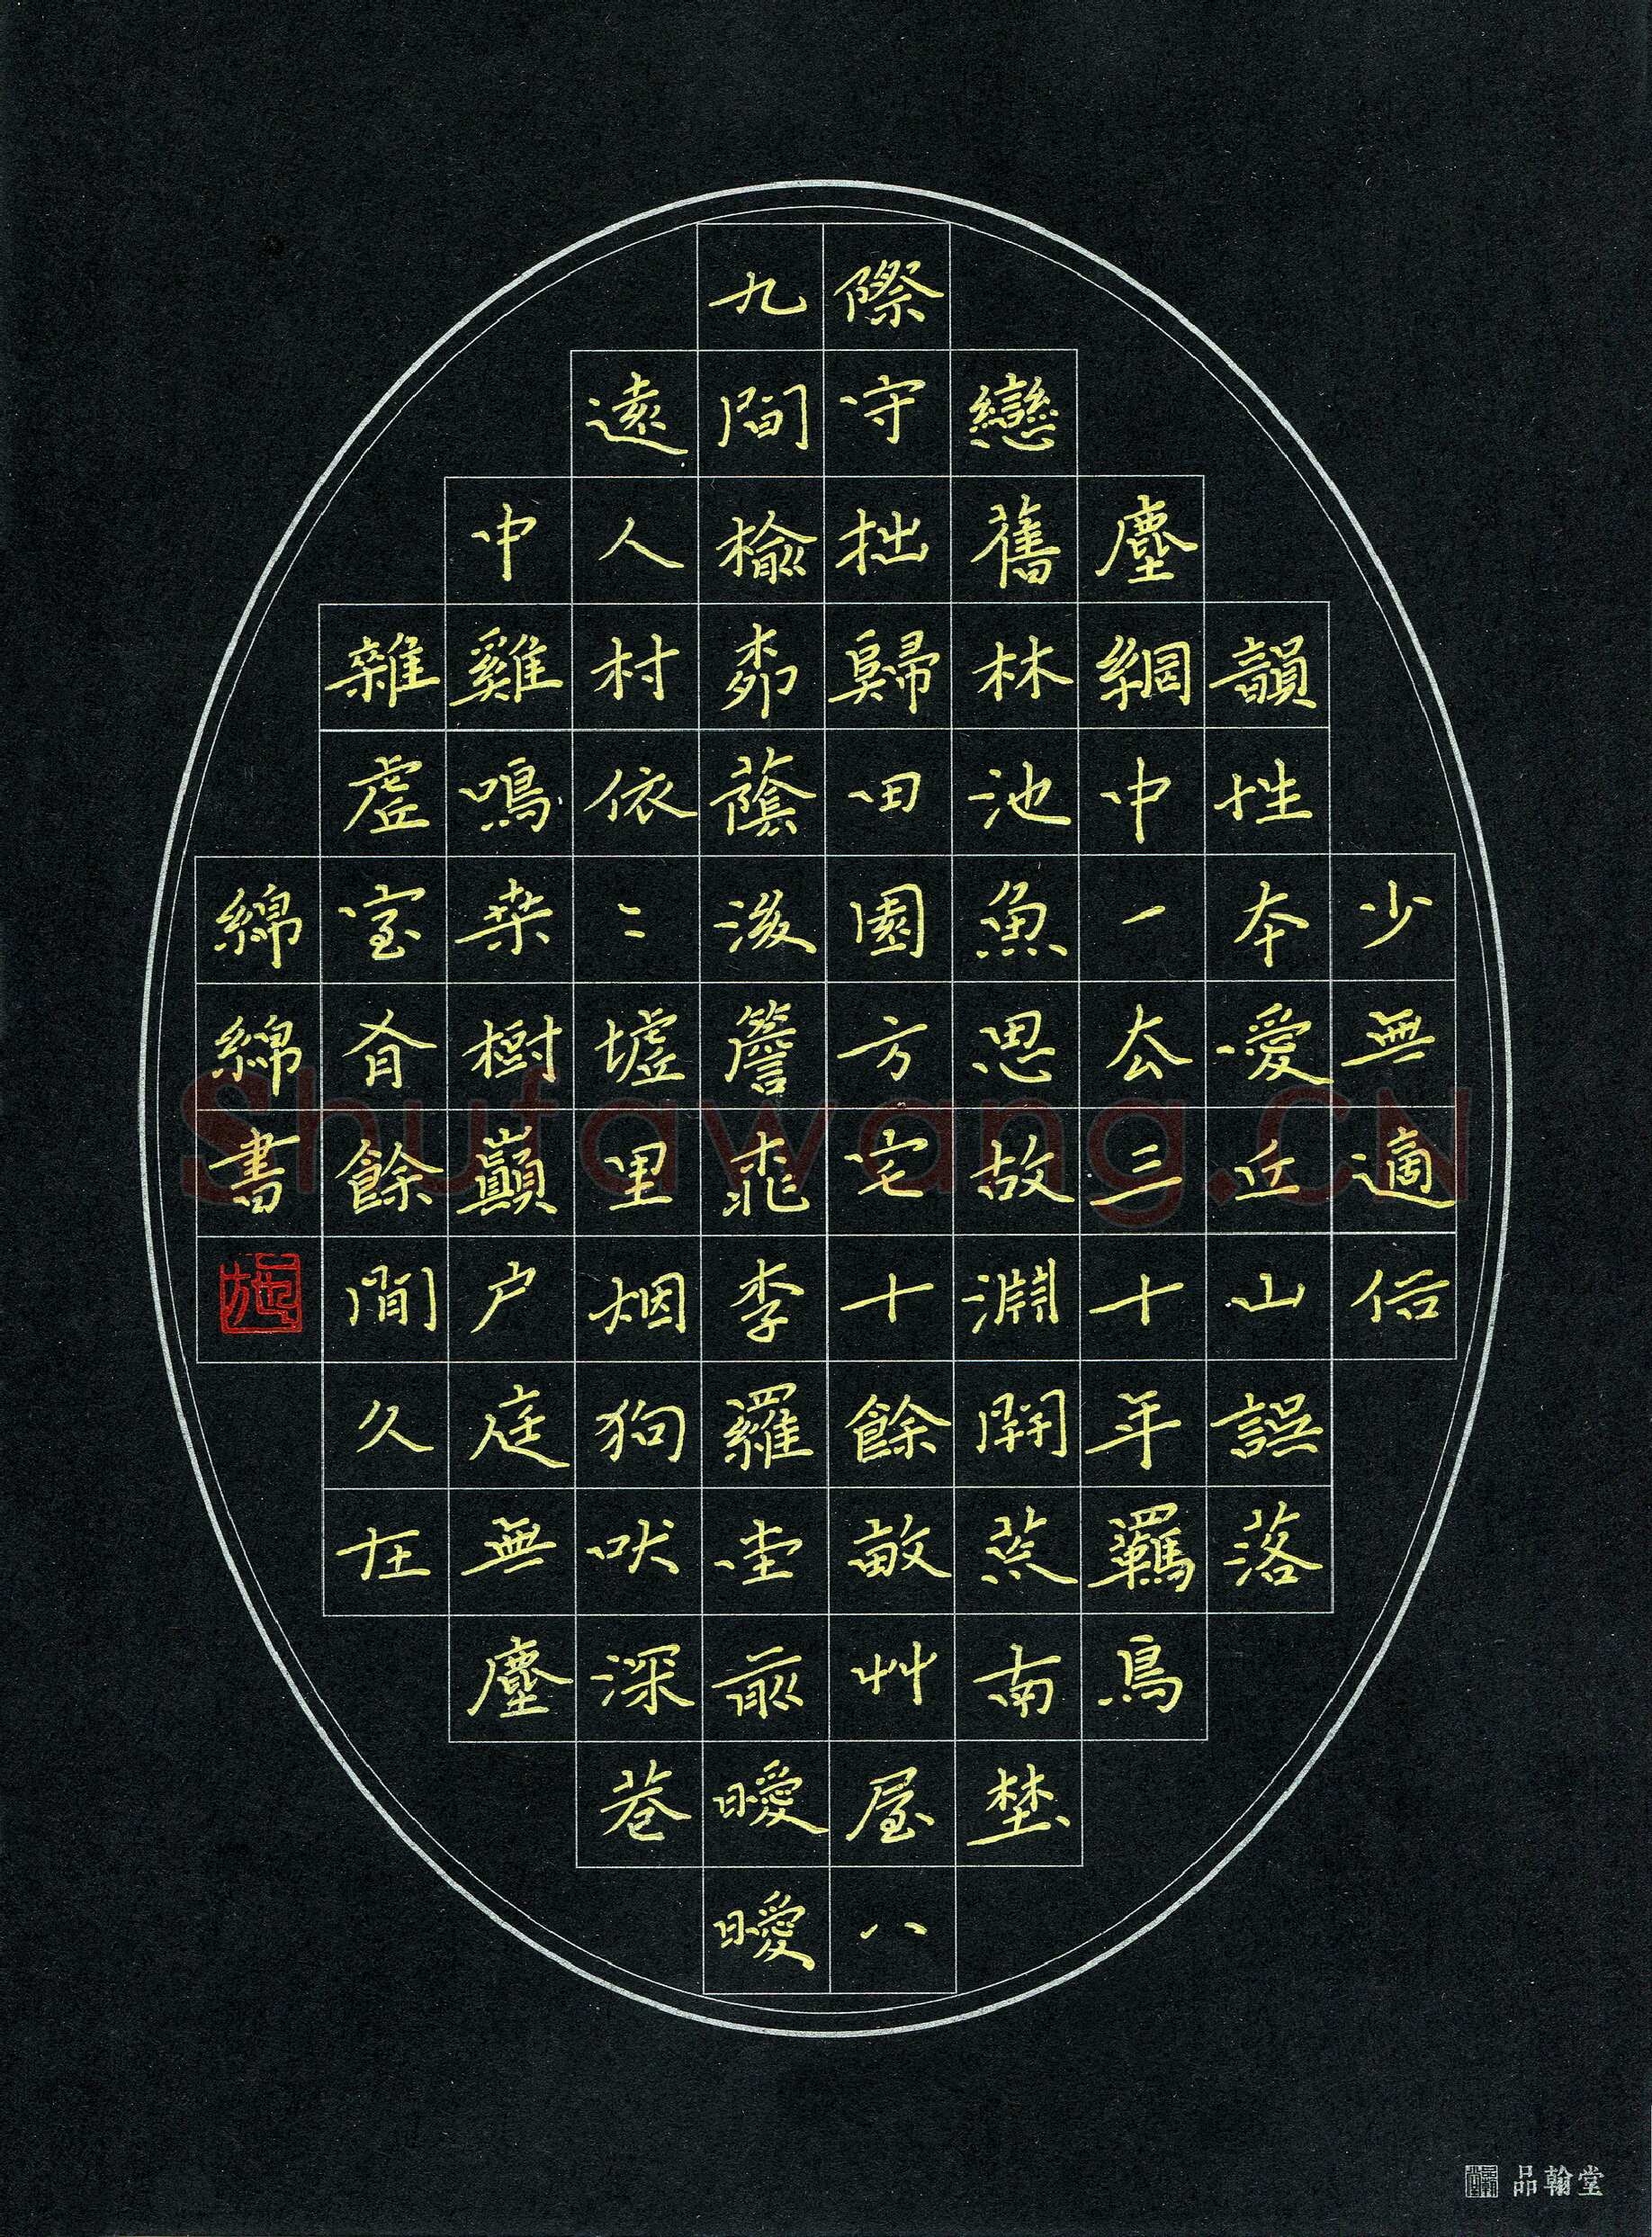 少無適俗
韻性本愛丘山誤落
塵網中一去三十年羈鳥
戀舊林池魚思故淵開荒南埜
際守拙歸田園方宅十餘畝艸屋八
九間榆柳蔭後簷桃李羅堂前曖曖
遠人村依〻墟里烟狗吠深巷
中雞鳴桑樹巔户庭無塵
雜虛室有餘閒久在
綿綿書
施
Shufawang.CN
品翰堂